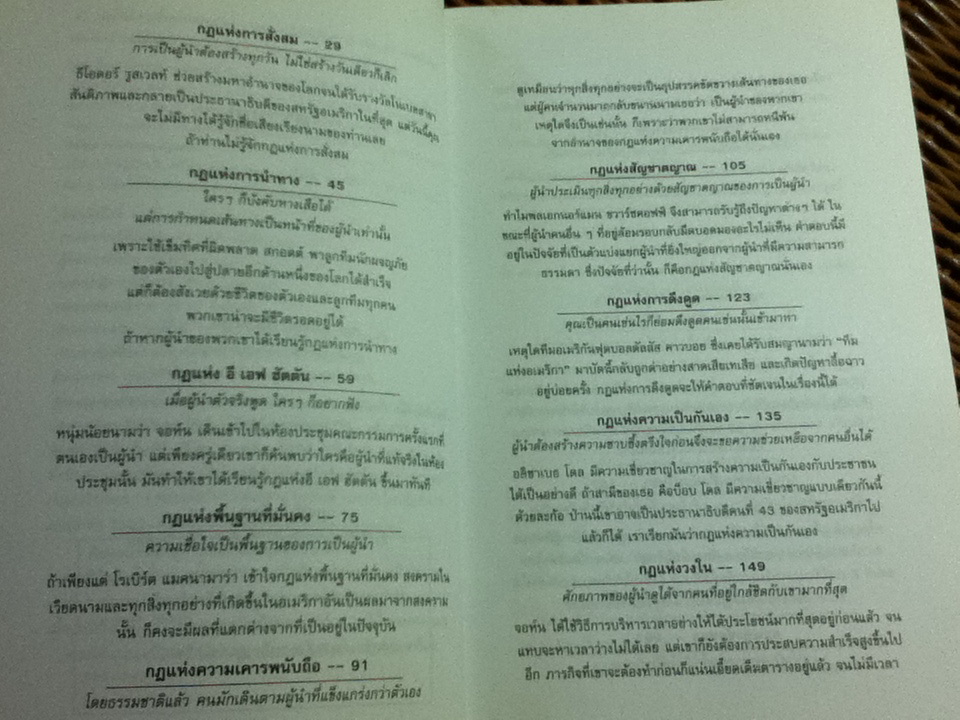 กฎแห่งการสั่งสม -- 29
การเป็นผู้นำต้องสร้างทุกวัน ไม่ใช่สร้างวันเดียวก็เลิก
ธีโอดอร์ รูสเวลท์ ช่วยสร้างมหาอำนาจของโลกจนได้รับรางวัลโนเบลสาขา
สันติภาพและกลายเป็นประธานาธิบดีของสหรัฐอเมริกาในที่สุด แต่วันนี้คุณ
จะไม่มีทางได้รู้จักชื่อเสียงเรียงนามของท่านเลย
ถ้าท่านไม่รู้จักกฎแห่งการสั่งสม
กฎแห่งการนำทาง -- 45
ใครๆ ก็บังคับหางเสือได้
แต่การกำหนดเส้นทางเป็นหน้าที่ของผู้นำเท่านั้น
เพราะใช้เข็มทิศที่ผิดพลาด สกอตต์ พาลูกทีมนักผจญภัย
ของตัวเองไปสู่ปลายอีกด้านหนึ่งของโลกได้สำเร็จ
แต่ก็ต้องสังเวยด้วยชีวิตของตัวเองและลูกทีมทุกคน
พวกเขาน่าจะมีชีวิตรอดอยู่ได้
ถ้าหากผู้นำของพวกเขาได้เรียนรู้กฎแห่งการนำทาง
กฎแห่ง อี เอฟ ฮัตตัน -- 59
เมื่อผู้นำตัวจริงพูด ใครๆ ก็อยากฟัง
หนุ่มน้อยนามว่า จอห์น เดินเข้าไปในห้องประชุมคณะกรรมการครั้งแรกที่
ตนเองเป็นผู้นำ แต่เพียงครู่เดียวเขาก็ค้นพบว่าใครคือผู้นำที่แท้จริงในห้อง
ประชุมนั้น มันทำให้เขาได้เรียนรู้กฎแห่งอี เอฟ ฮัตตัน ขึ้นมาทันที
กฎแห่งพื้นฐานที่มั่นคง -- 75
ความเชื่อใจเป็นพื้นฐานของการเป็นผู้นำ
ถ้าเพียงแต่ โรเบิร์ต แมคนามาร่า เข้าใจกฎแห่งพื้นฐานที่มั่นคง สงครามใน
เวียดนามและทุกสิ่งทุกอย่างที่เกิดขึ้นในอเมริกาอันเป็นผลมาจากสงคราม
นั้น ก็คงจะมีผลที่แตกต่างจากที่เป็นอยู่ในปัจจุบัน
กฎแห่งความเคารพนับถือ -- 91
โดยธรรมชาติแล้ว คนมักเดินตามผู้นำที่แข็งแกร่งกว่าตัวเอง
ดูเหมือนว่าทุกสิ่งทุกอย่างจะเป็นอุปสรรคขัดขวางเส้นทางของเธอ
แต่ผู้คนจำนวนมากกลับขนานนามเธอว่า เป็นผู้นำของพวกเขา
เหตุใดจึงเป็นเช่นนั้น ก็เพราะว่าพวกเขาไม่สามารถหนีพ้น
จากอำนาจของกฎแห่งความเคารพนับถือได้นั่นเอง
กฎแห่งสัญชาตญาณ -- 105
ผู้นำประเมินทุกสิ่งทุกอย่างด้วยสัญชาตญาณของการเป็นผู้นำ
ทำไมพลเอกนอร์แมน ชวาร์ซคอฟฟ์ จึงสามารถรับรู้ถึงปัญหาต่างๆ ได้ ใน
ขณะที่ผู้นำคนอื่น ๆ ที่อยู่ล้อมรอบกลับมืดบอดมองอะไรไม่เห็น คำตอบนี้มี
อยู่ในปัจจัยที่เป็นตัวแบ่งแยกผู้นำที่ยิ่งใหญ่ออกจากผู้นำที่มีความสามารถ
ธรรมดา ซึ่งปัจจัยที่ว่านั้น ก็คือกฎแห่งสัญชาตญาณนั่นเอง
กฎแห่งการดึงดูด -- 123
คุณเป็นคนเช่นไรก็ย่อมดึงดูดคนเช่นนั้นเข้ามาหา
เหตุใดทีมอเมริกันฟุตบอลดัลลัส คาวบอย ซึ่งเคยได้รับสมญานามว่า “ทีม
แห่งอเมริกา” มาบัดนี้กลับถูกด่าอย่างสาดเสียเทเสีย และเกิดปัญหาอื้อฉาว
อยู่บ่อยครั้ง กฎแห่งการดึงดูดจะให้คำตอบที่ชัดเจนในเรื่องนี้ได้
กฎแห่งความเป็นกันเอง -- 135
ผู้นำต้องสร้างความซาบซึ้งตรึงใจก่อนจึงจะขอความช่วยเหลือจากคนอื่นได้
อลิซาเบธ โดล มีความเชี่ยวชาญในการสร้างความเป็นกันเองกับประชาชน
ได้เป็นอย่างดี ถ้าสามีของเธอ คือบ๊อบ โดล มีความเชี่ยวชาญแบบเดียวกันนี้
ด้วยละก้อ ป่านนี้เขาอาจเป็นประธานาธิบดีคนที่ 43 ของสหรัฐอเมริกาไป
แล้วก็ได้ เราเรียกมันว่ากฎแห่งความเป็นกันเอง
กฎแห่งวงใน -- 149
ศักยภาพของผู้นำดูได้จากคนที่อยู่ใกล้ชิดกับเขามากที่สุด
จอห์น ได้ใช้วิธีการบริหารเวลาอย่างให้ได้ประโยชน์มากที่สุดอยู่ก่อนแล้ว จน
แทบจะหาเวลาว่างไม่ได้เลย แต่เขาก็ยังต้องการประสบความสำเร็จสูงขึ้นไป
อีก ภารกิจที่เขาจะต้องทำก่อนก็แน่นเอี๊ยดเต็มตารางอยู่แล้ว จนไม่มีเวลา